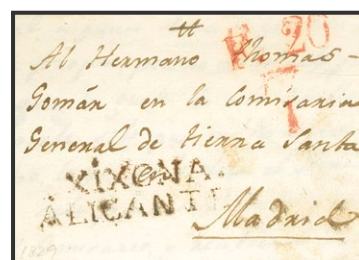 R 20
Al Hermano Thomas
Gomán en la Comisaria
General de tierra Santa
en
XIXONA.
ALICANTE
Madrid
1829